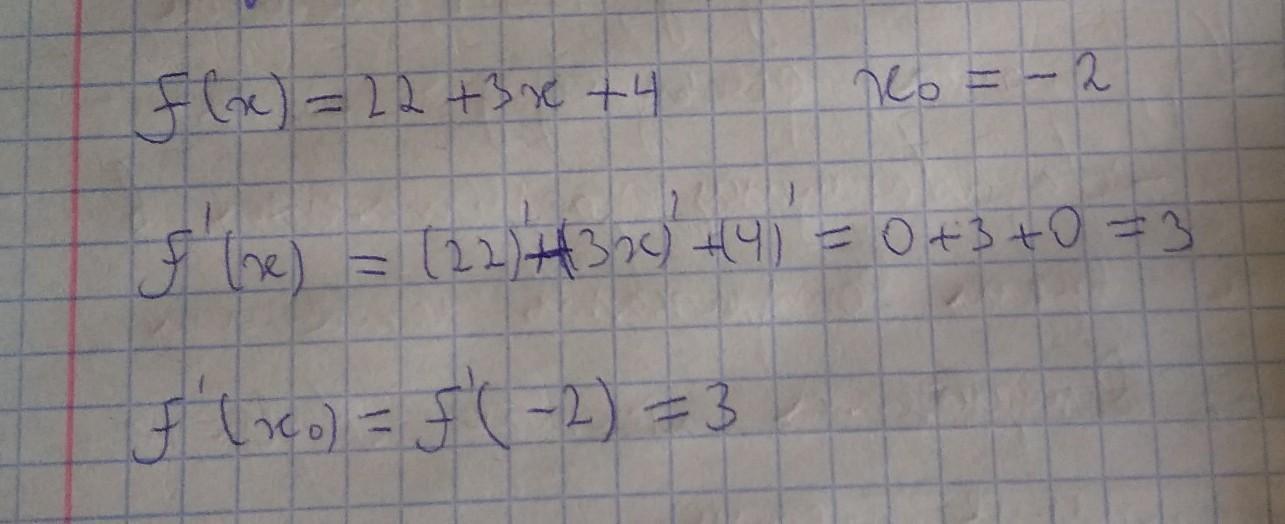 f(x) = 22 + 3x + 4 x₀ = -2
f'(x) = (22)' + (3x)' + (4)' = 0 + 3 + 0 = 3
f'(x₀) = f'(-2) = 3